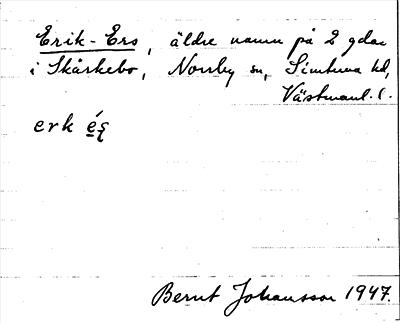 Erik-Ers, äldre namn på 2 gdar
i Skårkebo, Norrby sn, Simtuna hd,
Västmanl. l.
erk é̠ʂ
Bernt Johansson 1947.